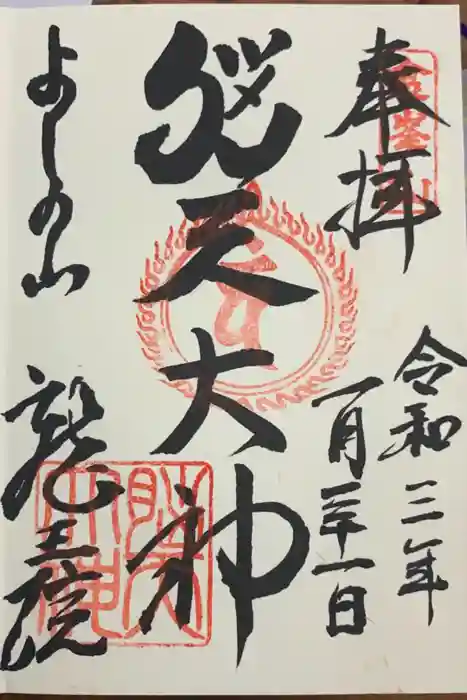 奉拝
金峯山
令和三年
一月三十一日
脳天大神
よしの山
龍王院